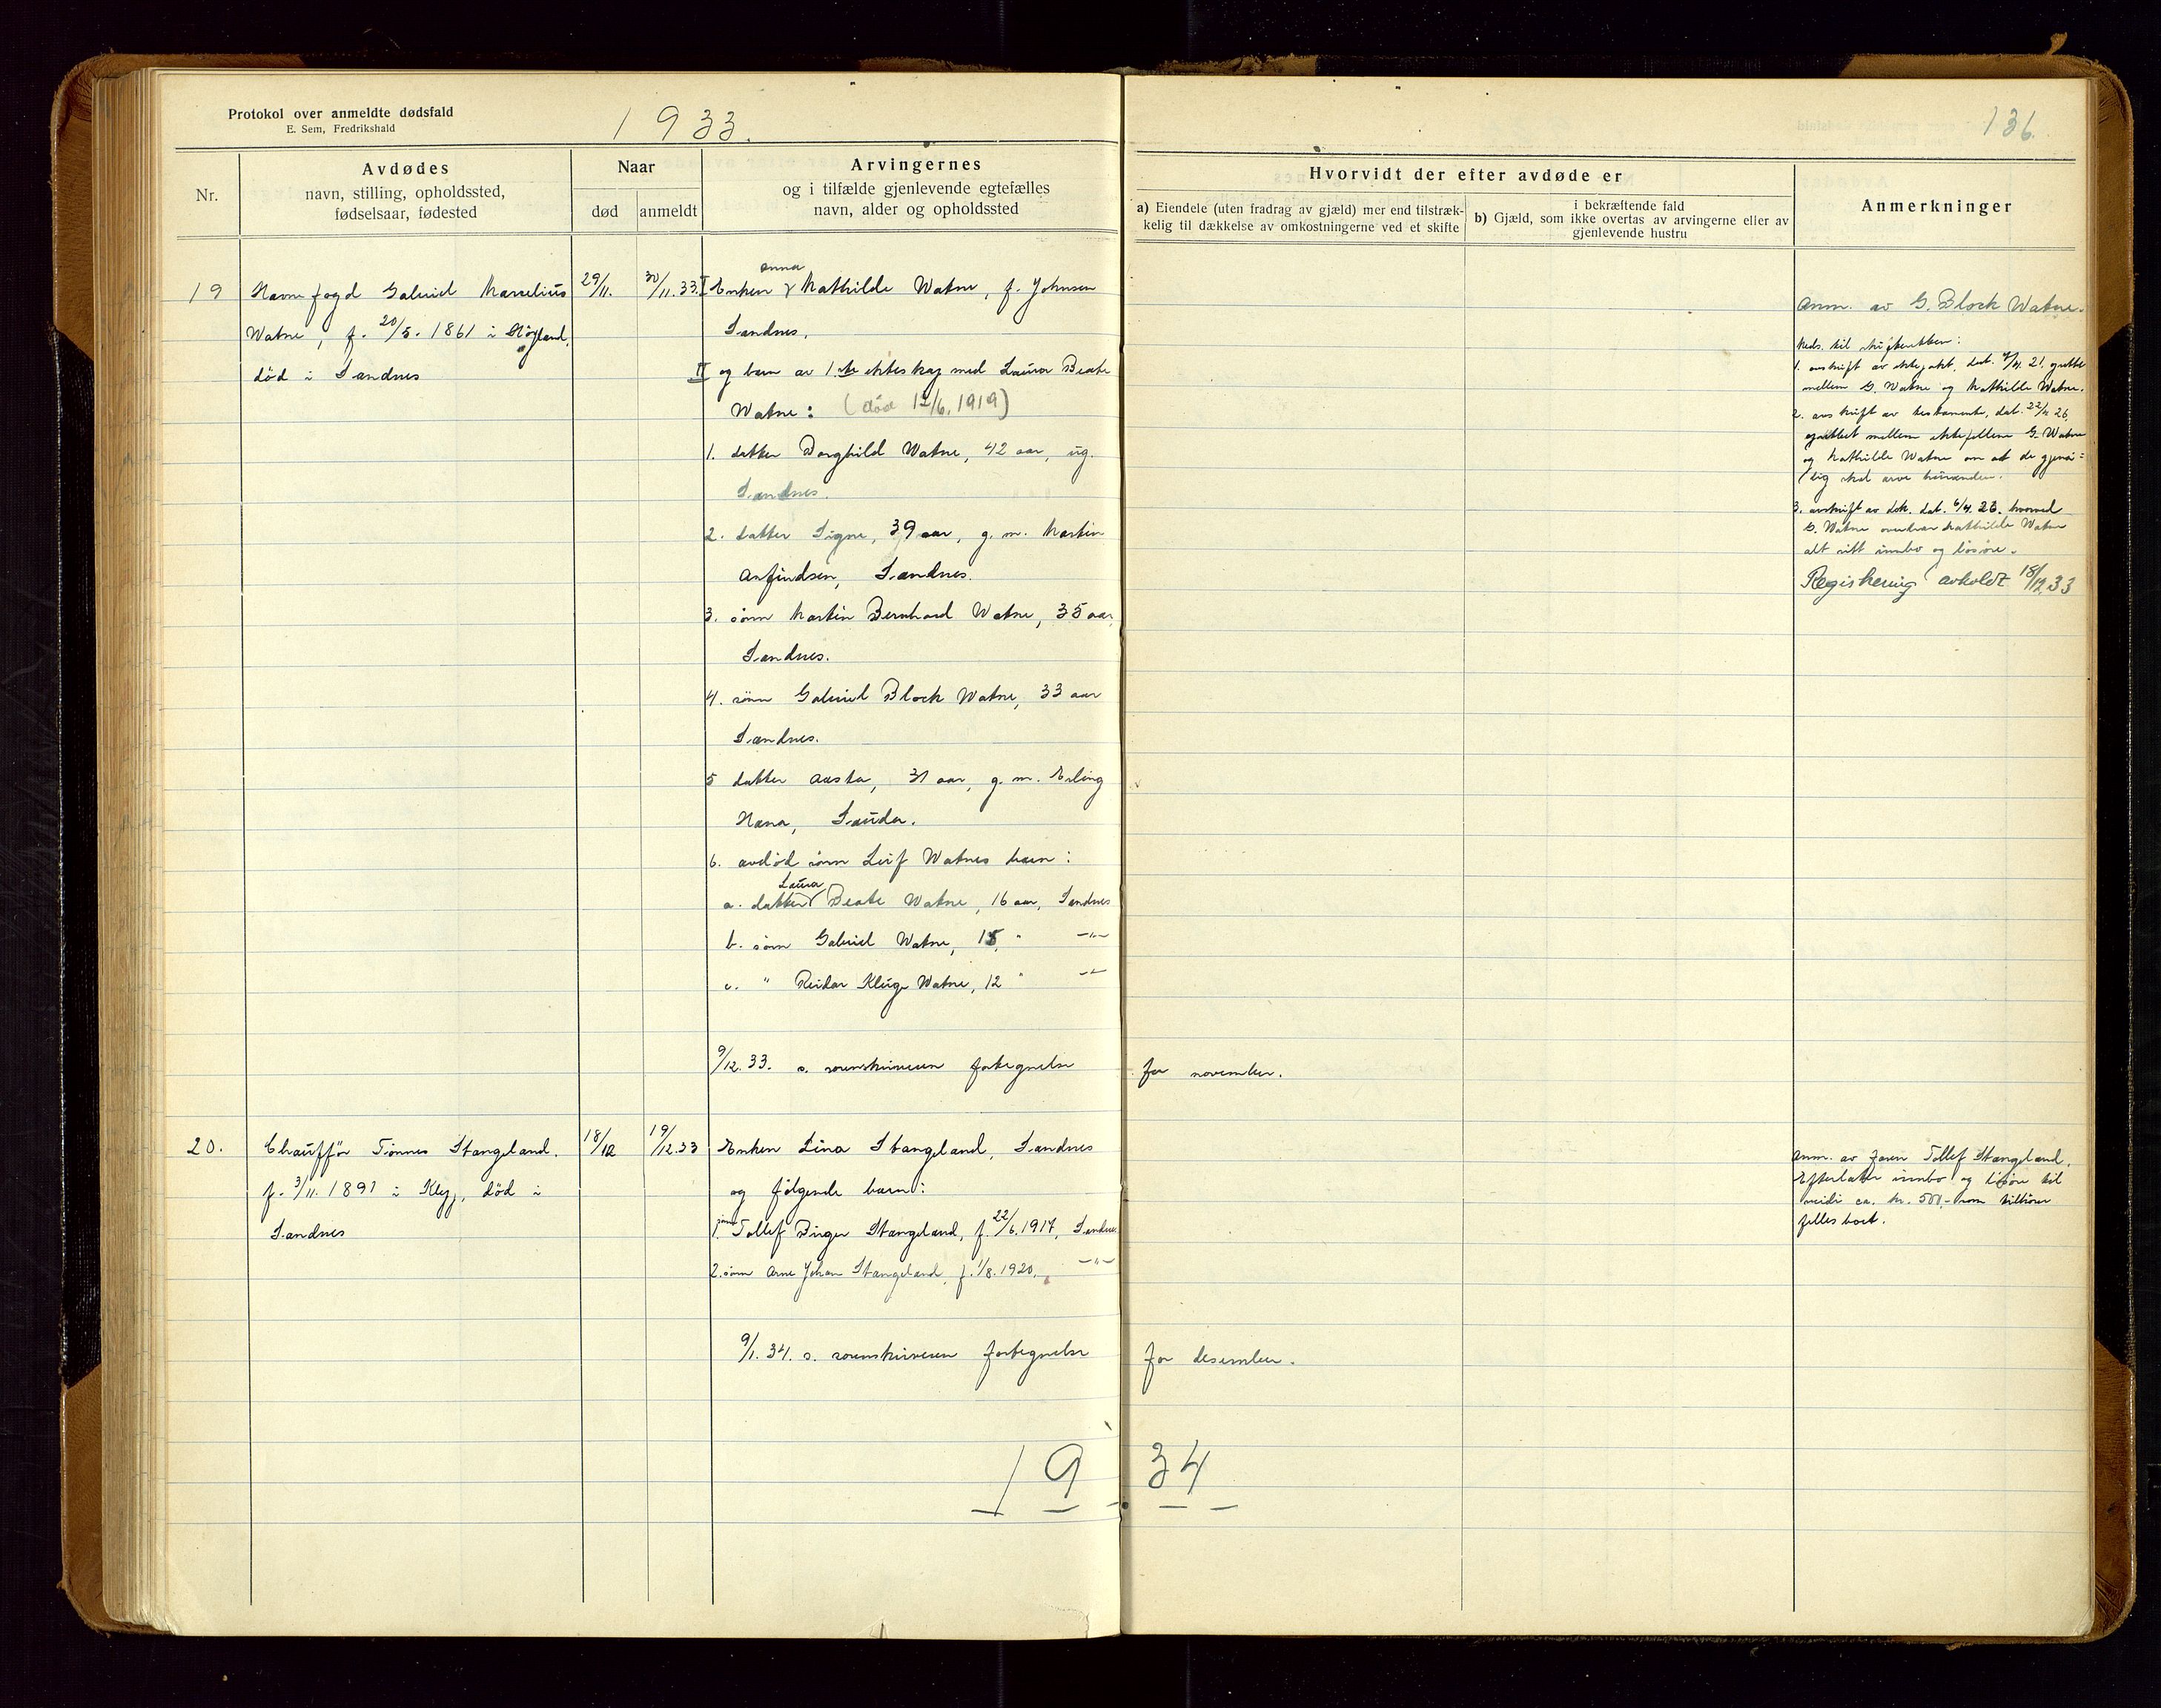 Protokol over anmeldte dødsfald
E. Sem, Fredrikshald
1933.
136.
Nr.
Avdødes
navn, stilling, opholdssted,
fødselsaar, fødested
Naar
død
anmeldt
Arvingernes
og i tilfælde gjenlevende egtefælles
navn, alder og opholdssted
Hvorvidt der efter avdøde er
a) Eiendele (uten fradrag av gjæld) mer end tilstræk-
kelig til dækkelse av omkostningerne ved et skifte
i bekræftende fald
b) Gjæld, som ikke overtas av arvingerne eller av
gjenlevende hustru
Anmerkninger
19
Havnefogd Gabriel Marselius
Watne, f. 20/5. 1861 i Høyland,
død i Sandnes
29/11.
30/11.33.
Anna
I Enken Mathilde Watne, f. Johnsen
Sandnes.
II og barn av 1ste ekteskap med Laura Beate
Watne: (død 12/6. 1919)
1. datter Borghild Watne, 42 aar, ug.
Sandnes.
2. datter Signe, 39 aar, g. m. Martin
Anfindsen, Sandnes.
3. sønn Martin Bernhard Watne, 35 aar,
Sandnes.
4. sønn Gabriel Block Watne, 33 aar
Sandnes.
5 datter Aasta, 31 aar, g. m. Erling
Hana, Sauda.
6. avdød sønn Leif Watnes barn:
Laura
a. datter Beate Watne, 16 aar, Sandnes
b. sønn Gabriel Watne, 15 " —"—
c. " Reidar Kluge Watne, 12 " —"—
9/12. 33. s. sorenskriveren fortegnelse for november.
Anm. av G. Block Watne.
Meds. til skifteretten:
1. avskrift av ektepakt, dat. 7/4. 21, oprettet
mellem G. Watne og Mathilde Watne.
2. avskrift av testamente, dat. 22/4 26,
oprettet mellem ektefellene G. Watne
og Mathilde Watne om at de gjensi=
dig skal arve hinanden.
3. avskrift av dok. dat. 6/4. 26. hvorved
G. Watne overdrar Mathilde Watne
alt sitt innbo og løsøre.
Registrering avholdt 18/12 33
20.
Chauffør Tønnes Stangeland.
f. 3/11. 1891 i Klepp, død i
Sandnes
18/12
19/12.33
Enken Lina Stangeland, Sandnes
og følgende barn:
1. sønn Tollef Birger Stangeland, f. 22/6. 1917, Sandnes
2. sønn Arne Johan Stangeland, f. 1/8. 1920, —"—
Anm. av faren Tollef Stangeland.
Efterlater innbo og løsøre til
verdi ca. kr. 500,- som tilhører
fellesboet.
9/1. 34. s. sorenskriveren fortegnelse for desember.
1934